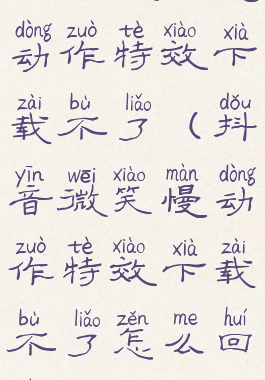 dòng zuò tè xiào xià
动作特效下
zài bù liǎo dǒu
载不了（抖
yīn wēi xiào màn dòng
音微笑慢动
zuò tè xiào xià zài
作特效下载
bù liǎo zěn me huí
不了怎么回